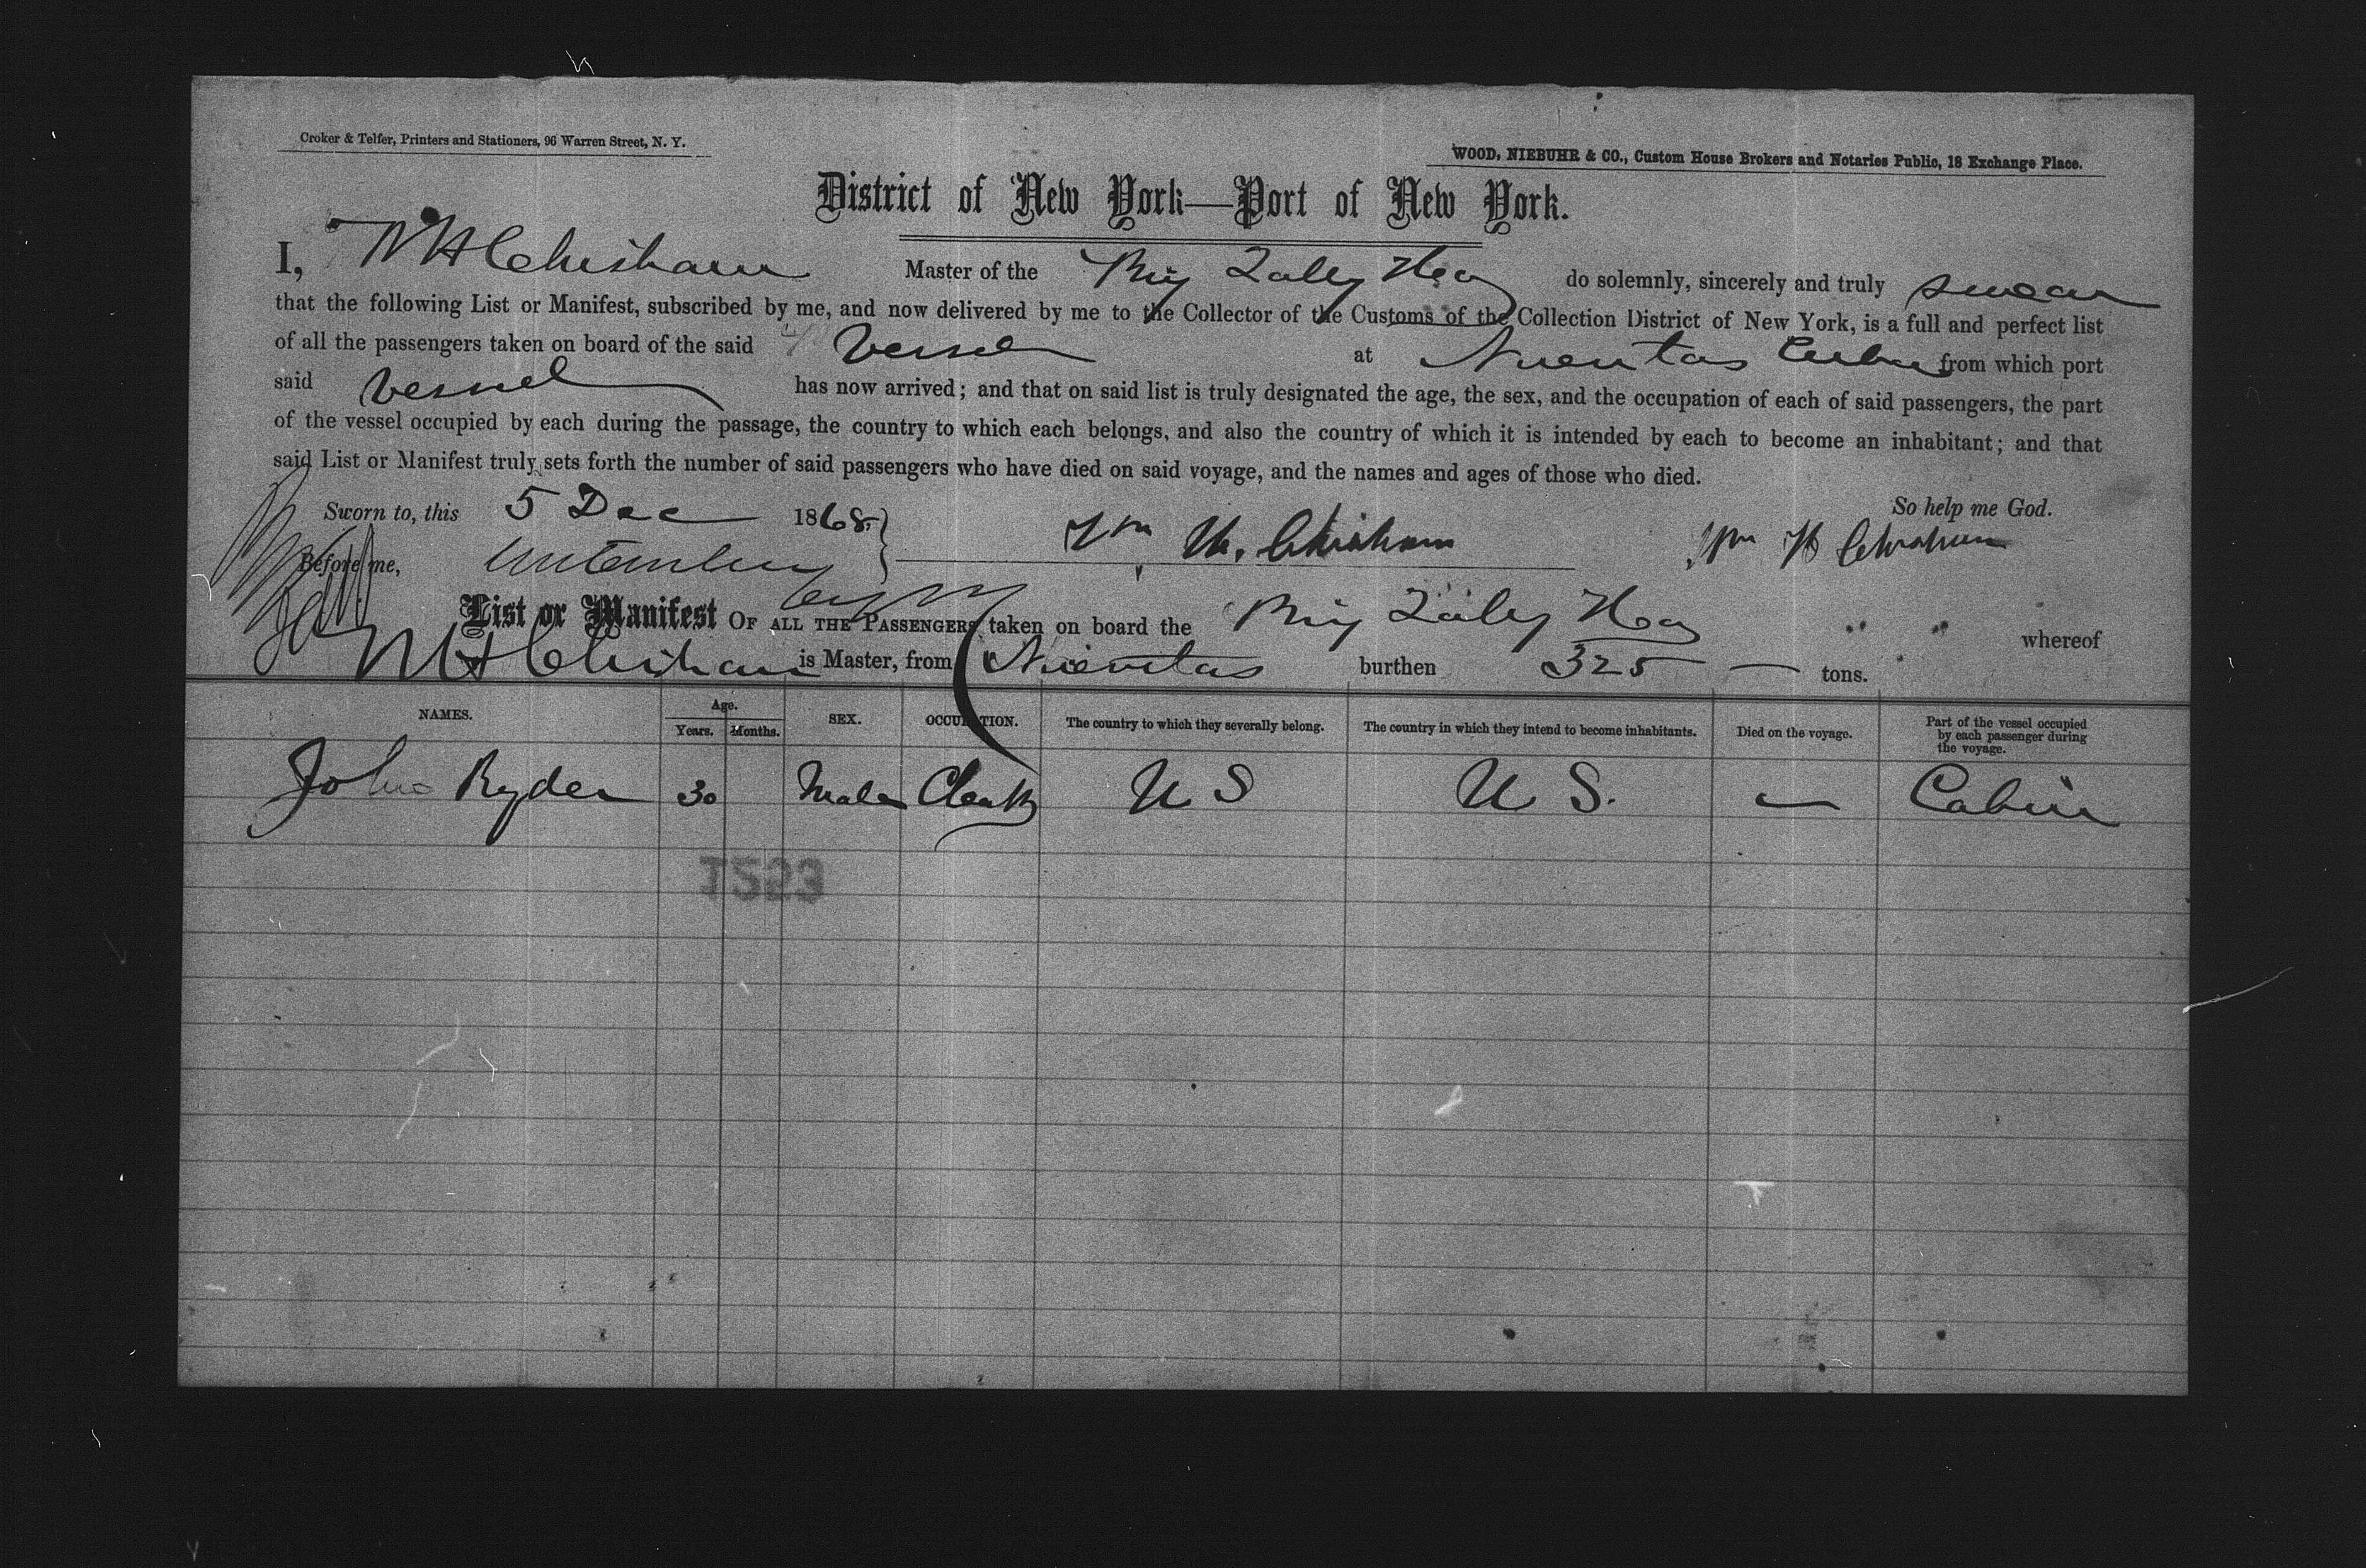 Croker & Telfer, Printers and Stationers, 96 Warren Street, N. Y.
WOOD, NIEBUHR & CO., Custom House Brokers and Notaries Public, 18 Exchange Place.
District of New York—Port of New York.
I, W H Chisham Master of the Brig do solemnly, sincerely and truly swear
that the following List or Manifest, subscribed by me, and now delivered by me to the Collector of the Customs of the Collection District of New York, is a full and perfect list
of all the passengers taken on board of the said Vessel at Nuevitas Cuba from which port
said Vessel has now arrived; and that on said list is truly designated the age, the sex, and the occupation of each of said passengers, the part
of the vessel occupied by each during the passage, the country to which each belongs, and also the country of which it is intended by each to become an inhabitant; and that
said List or Manifest truly sets forth the number of said passengers who have died on said voyage, and the names and ages of those who died.
So help me God.
Sworn to, this 5 Dec 1868. Wm H. Chisham Wm H Chisham
Before me,
List or Manifest OF ALL THE PASSENGERS taken on board the Brig " " whereof
W H Chisham is Master, from Nuevitas burthen 325 — tons.
NAMES. Age. Years. Months. SEX. OCCUPATION. The country to which they severally belong. The country in which they intend to become inhabitants. Died on the voyage. Part of the vessel occupied by each passenger during the voyage.
John Ryder 30 Male Clerk U S U S. — Cabin